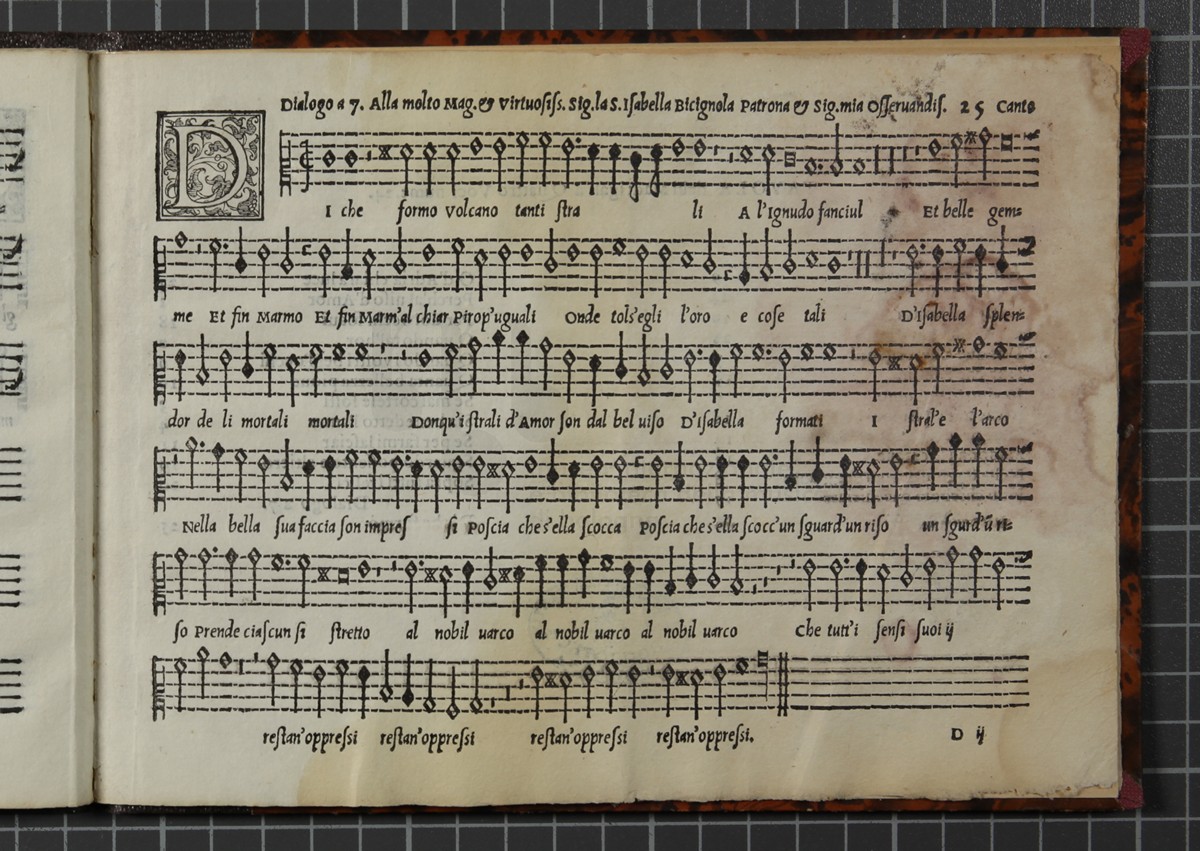 Dialogo a 7. Alla molto Mag. & Virtuosiſs. Sig. la S. Iſabella Bicignola Patrona & Sig. mia Oſſeruandiſ. 25 Canto
D
I che formo Volcano tanti ſtra li A l'Ignudo fanciul Et belle gem=
me Et fin Marmo Et fin Marm'al chiar Pirop'uguali Onde tols'egli l'oro e coſe tali D'Iſabella ſplen=
dor de li mortali mortali Donqu'i ſtrali d'Amor ſon dal bel uiſo D'iſabella formati I ſtral'e l'arco
Nella bella ſua faccia ſon impreſ ſi Poſcia che s'ella ſcocca Poſcia che s'ella ſcocc'un ſguard'un riſo un ſgurd'ũ ri=
ſo Prende ciaſcun ſi ſtretto al nobil uarco al nobil uarco al nobil uarco Che tutt'i ſenſi ſuoi ij
reſtan'oppreſſi reſtan'oppreſſi reſtan'oppreſſi reſtan'oppreſſi.
D ij